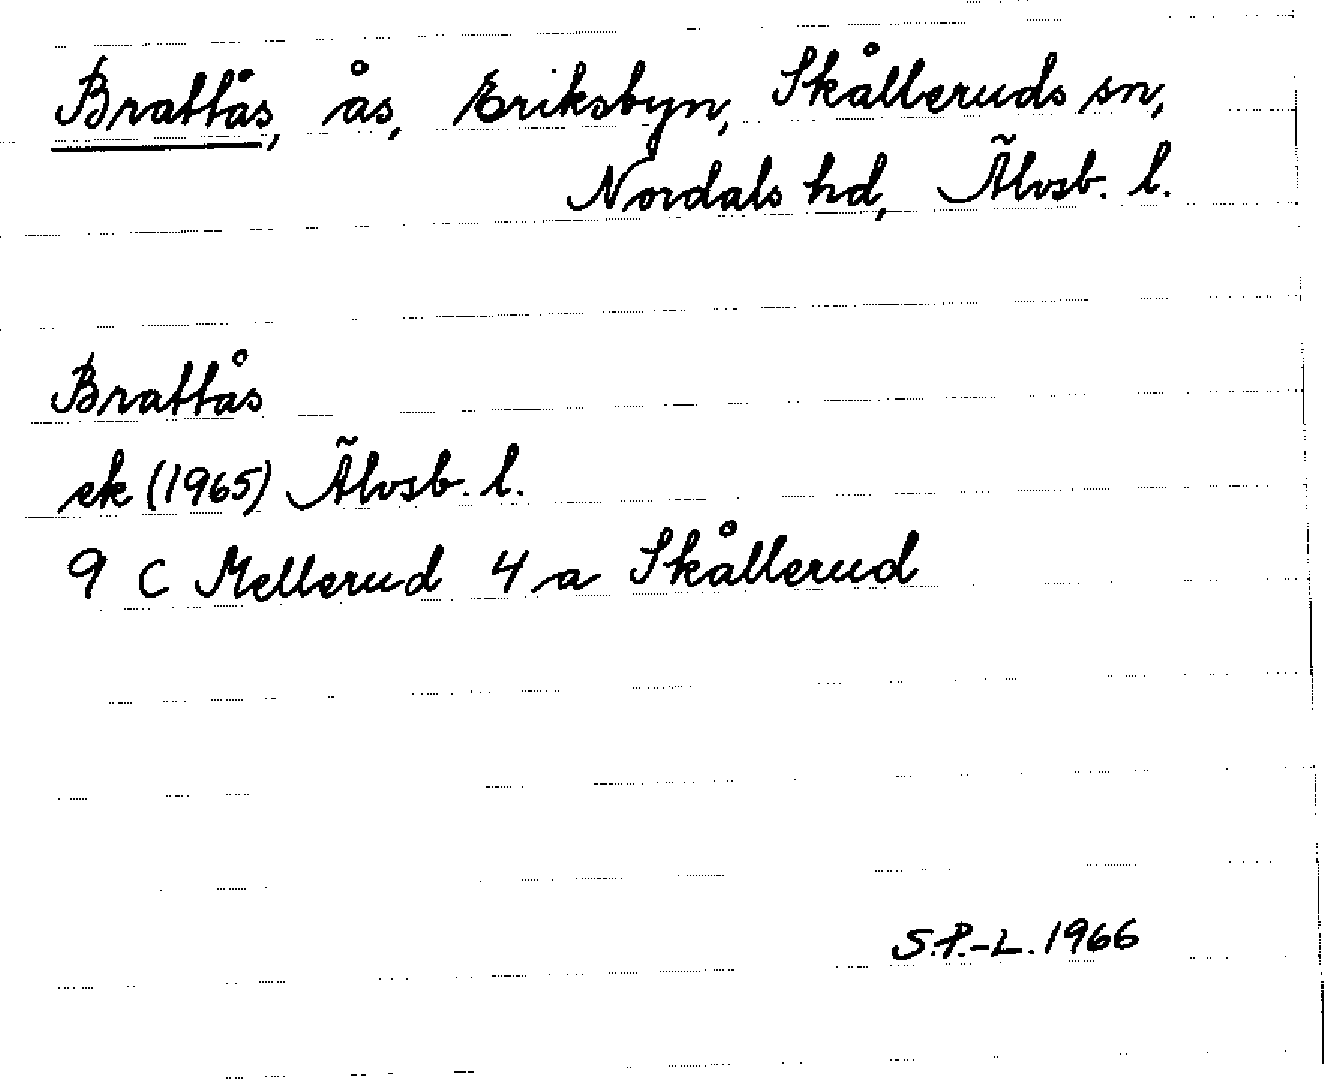 Brattås, ås, Eriksbyn, Skålleruds sn,
Nordals hd, Älvsb. l.
Brattås
ek (1965) Älvsb. l.
9 C Mellerud 4 a Skållerud
S.P.-L. 1966